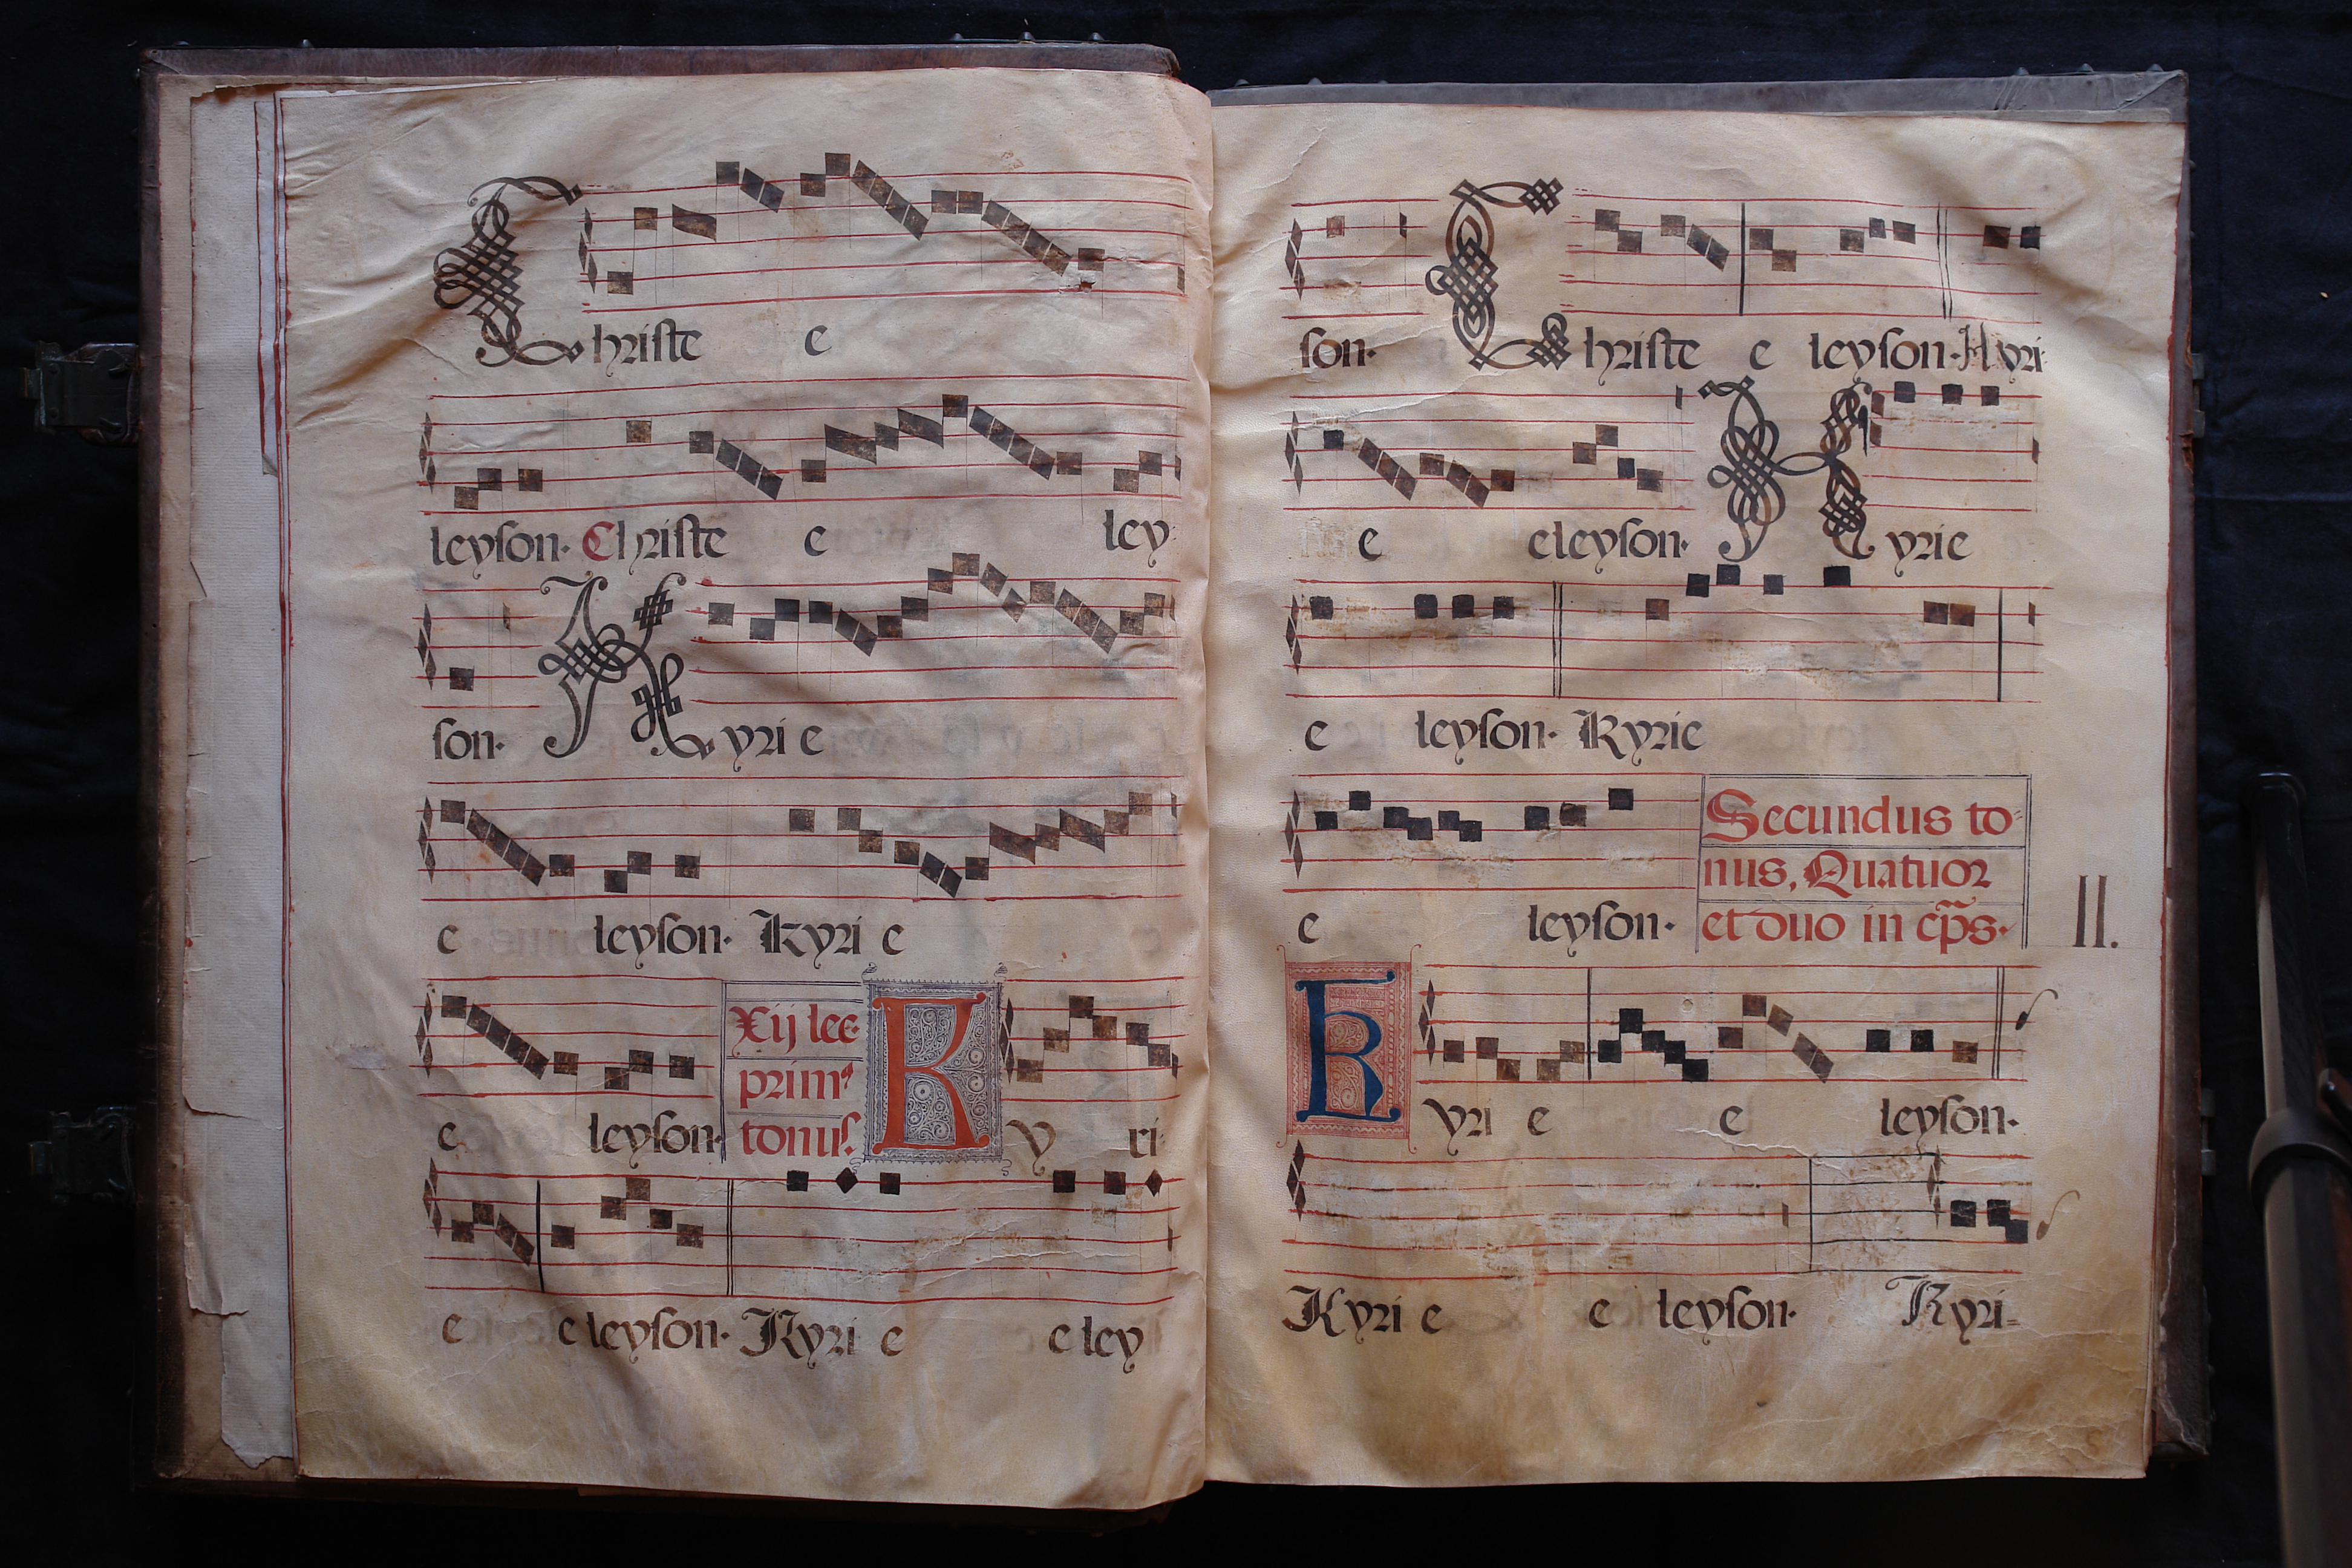 Christe e
leyson. Christe e ley
son. Kyrie
e leyson. Kyri e
e leyson. Xij lec
prim⁹
tonus. Ky ri
e e leyson. Kyri e e ley
son. Christe e leyson. Kyri
e eleyson. Kyrie
e leyson. Kyrie
e leyson. Secundus to-
nus, Quatuor
et duo in cp̃s.
II.
Kyri e e leyson.
Kyri e e leyson. Kyri=